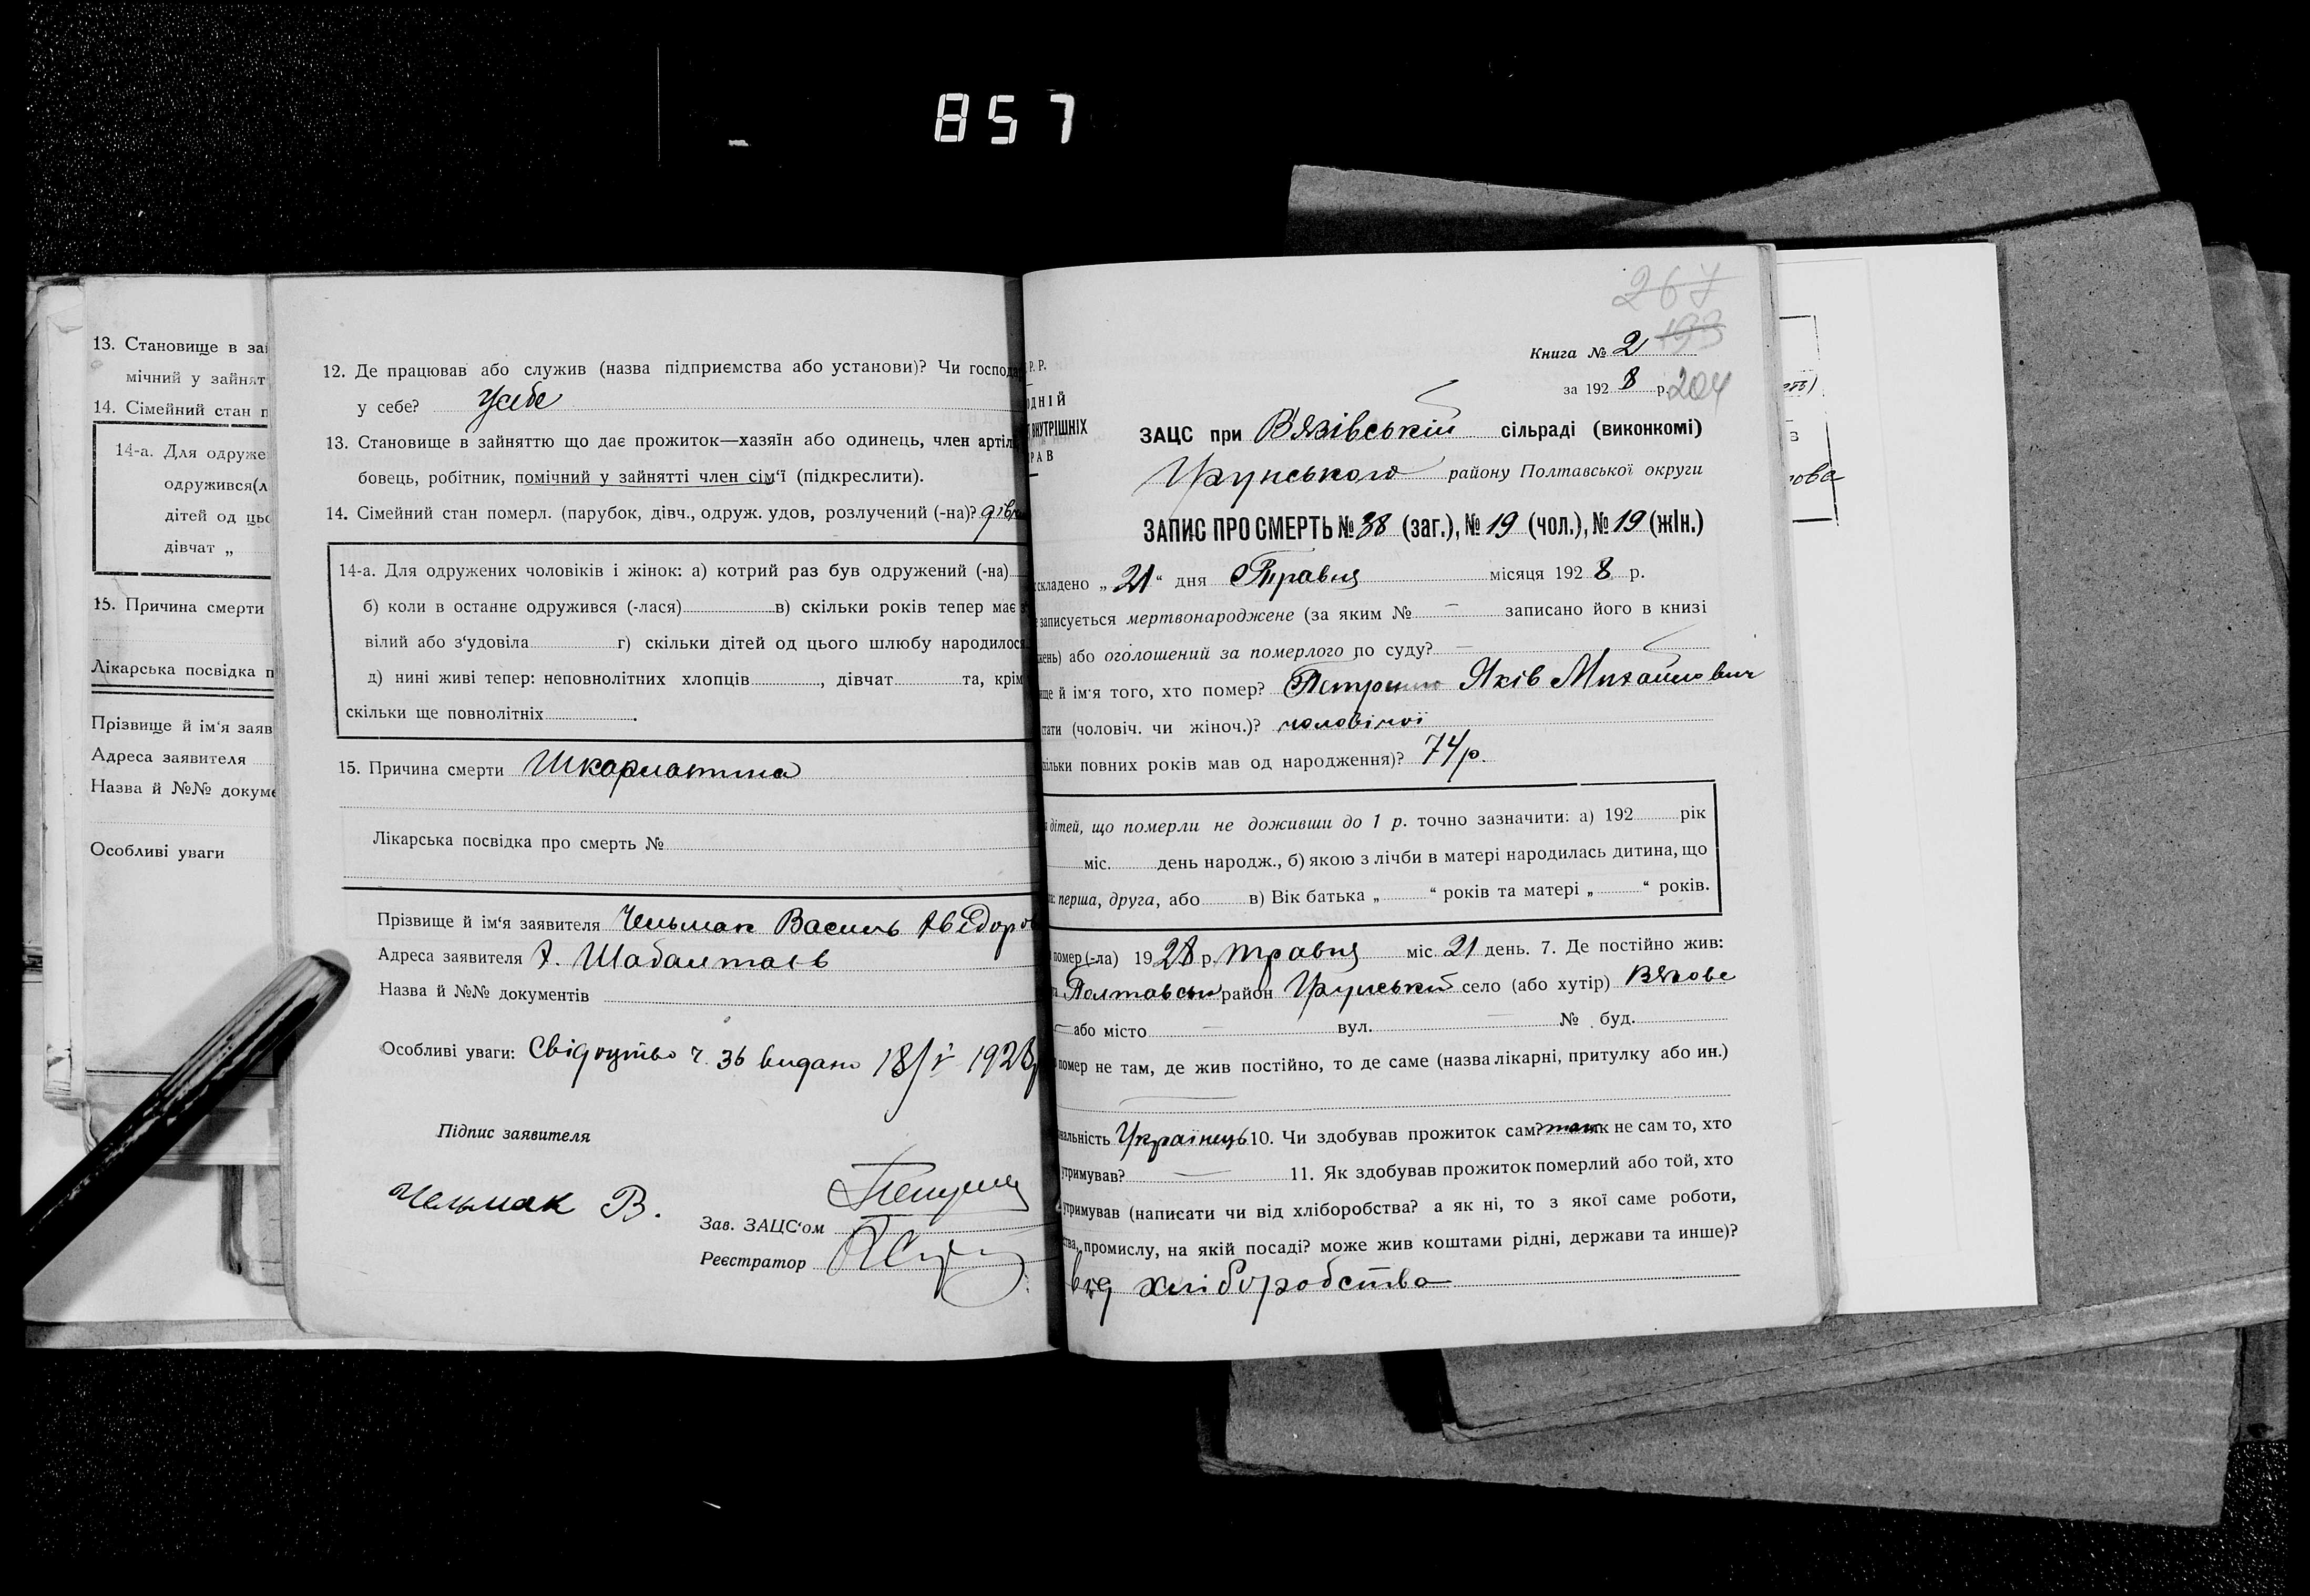 857
13. Становище в за
мічний у зайнят
14. Сімейний стан п
14-а. Для одруже
одружився(л
дітей од цьо
дівчат „
15. Причина смерти
Лікарська посвідка п
Прізвище й ім'я заяв
Адреса заявителя
Назва й №№ докуме
Особливі уваги
12. Де працював або служив (назва підприємства або установи)? Чи господа
у себе? Усебе
13. Становище в зайняттю що дає прожиток—хазяїн або одинець, член артіл
бовець, робітник, помічний у зайнятті член сім'ї (підкреслити).
14. Сімейний стан померл. (парубок, дівч., одруж. удов, розлучений (-на)?
14-а. Для одружених чоловіків і жінок: а) котрий раз був одружений (-на)
б) коли в останнє одружився (-лася) в) скільки років тепер має
вілий або з'удовіла г) скільки дітей од цього шлюбу народилося
д) нині живі тепер: неповнолітних хлопців , дівчат та, крім
скільки ще повнолітніх .
15. Причина смерти Шкарлатина
Лікарська посвідка про смерть №
Прізвище й ім'я заявителя Чельмак Василь
Адреса заявителя
Назва й №№ документів
Особливі уваги: Свідоцтво ч. 36 видано 18/V 1928
Підпис заявителя
Чельмак В.
Зав. ЗАЦС'ом
Реєстратор
267
193
Книга № 2
за 1928 р. 204
Р. Р.
ОДНІЙ
ВНУТРІШНІХ
РАВ
ЗАЦС при В'язівській сільраді (виконкомі)
Грунського району Полтавської округи
ЗАПИС ПРО СМЕРТЬ № 38 (заг.), № 19 (чол.), № 19 (жін.)
складено „21“ дня Травня місяця 1928 р.
записується мертвонароджене (за яким № — записано його в книзі
жень) або оголошений за померлого по суду? —
ще й ім'я того, хто помер? Яків Михайлович
тати (чоловіч. чи жіноч.)? чоловічої
кільки повних років мав од народження)? 74 р.
дітей, що померли не доживши до 1 р. точно зазначити: а) 192 рік
міс. день народж., б) якою з лічби в матері народилась дитина, що
перша, друга, або в) Вік батька „ “ років та матері „ “ років.
помер (-ла) 1928 р. травня міс. 21 день. 7. Де постійно жив:
Полтавськ район Грунський село (або хутір) Вязове
— або місто — вул. — № буд.
помер не там, де жив постійно, то де саме (назва лікарні, притулку або ин.)
—
нальність Українець 10. Чи здобував прожиток сам? так як не сам то, хто
утримував? — 11. Як здобував прожиток померлий або той, хто
утримував (написати чи від хліборобства? а як ні, то з якої саме роботи,
ства, промислу, на якій посаді? може жив коштами рідні, держави та инше)?
від хліборобства